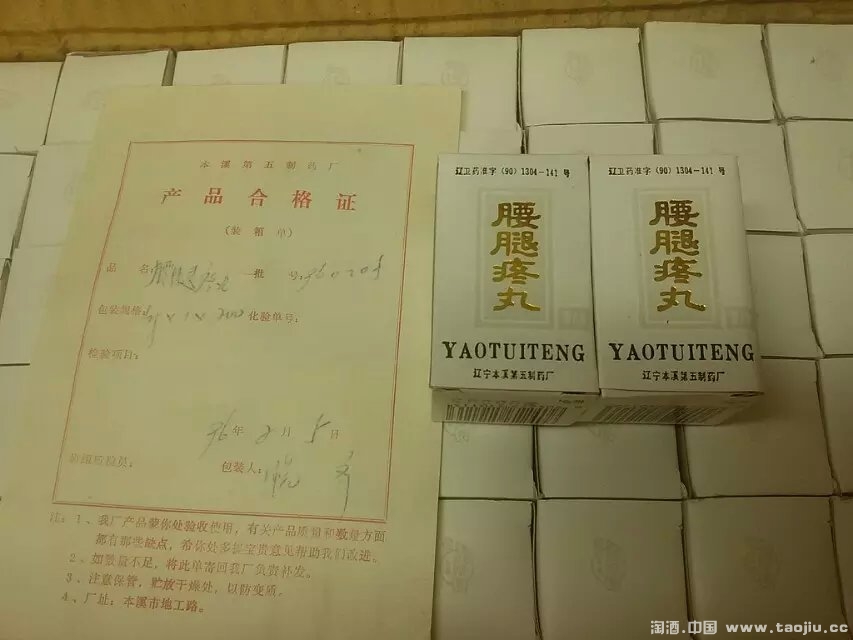 本溪第五制药厂
产品合格证
(装箱单)
品名 腰腿疼丸 批号 960204
包装规格: × 1 × 200 化验单号:
检验项目:
96年2月5日
班组质检员: 包装人:
注:1、我厂产品蒙你处验收使用,有关产品质量和数量方面
都有那些缺点,希你处多提宝贵意见帮助我们改进。
2、如数量不足,将此单寄回我厂负责补发。
3、注意保管,贮放干燥处,以防变质。
4、厂址:本溪市地工路。
辽卫药准字(90)1304-141号
腰腿疼丸
YAOTUITENG
辽宁本溪第五制药厂
辽卫药准字(90)1304-141号
腰腿疼丸
YAOTUITENG
辽宁本溪第五制药厂
淘酒.中国 www.taojiu.cc